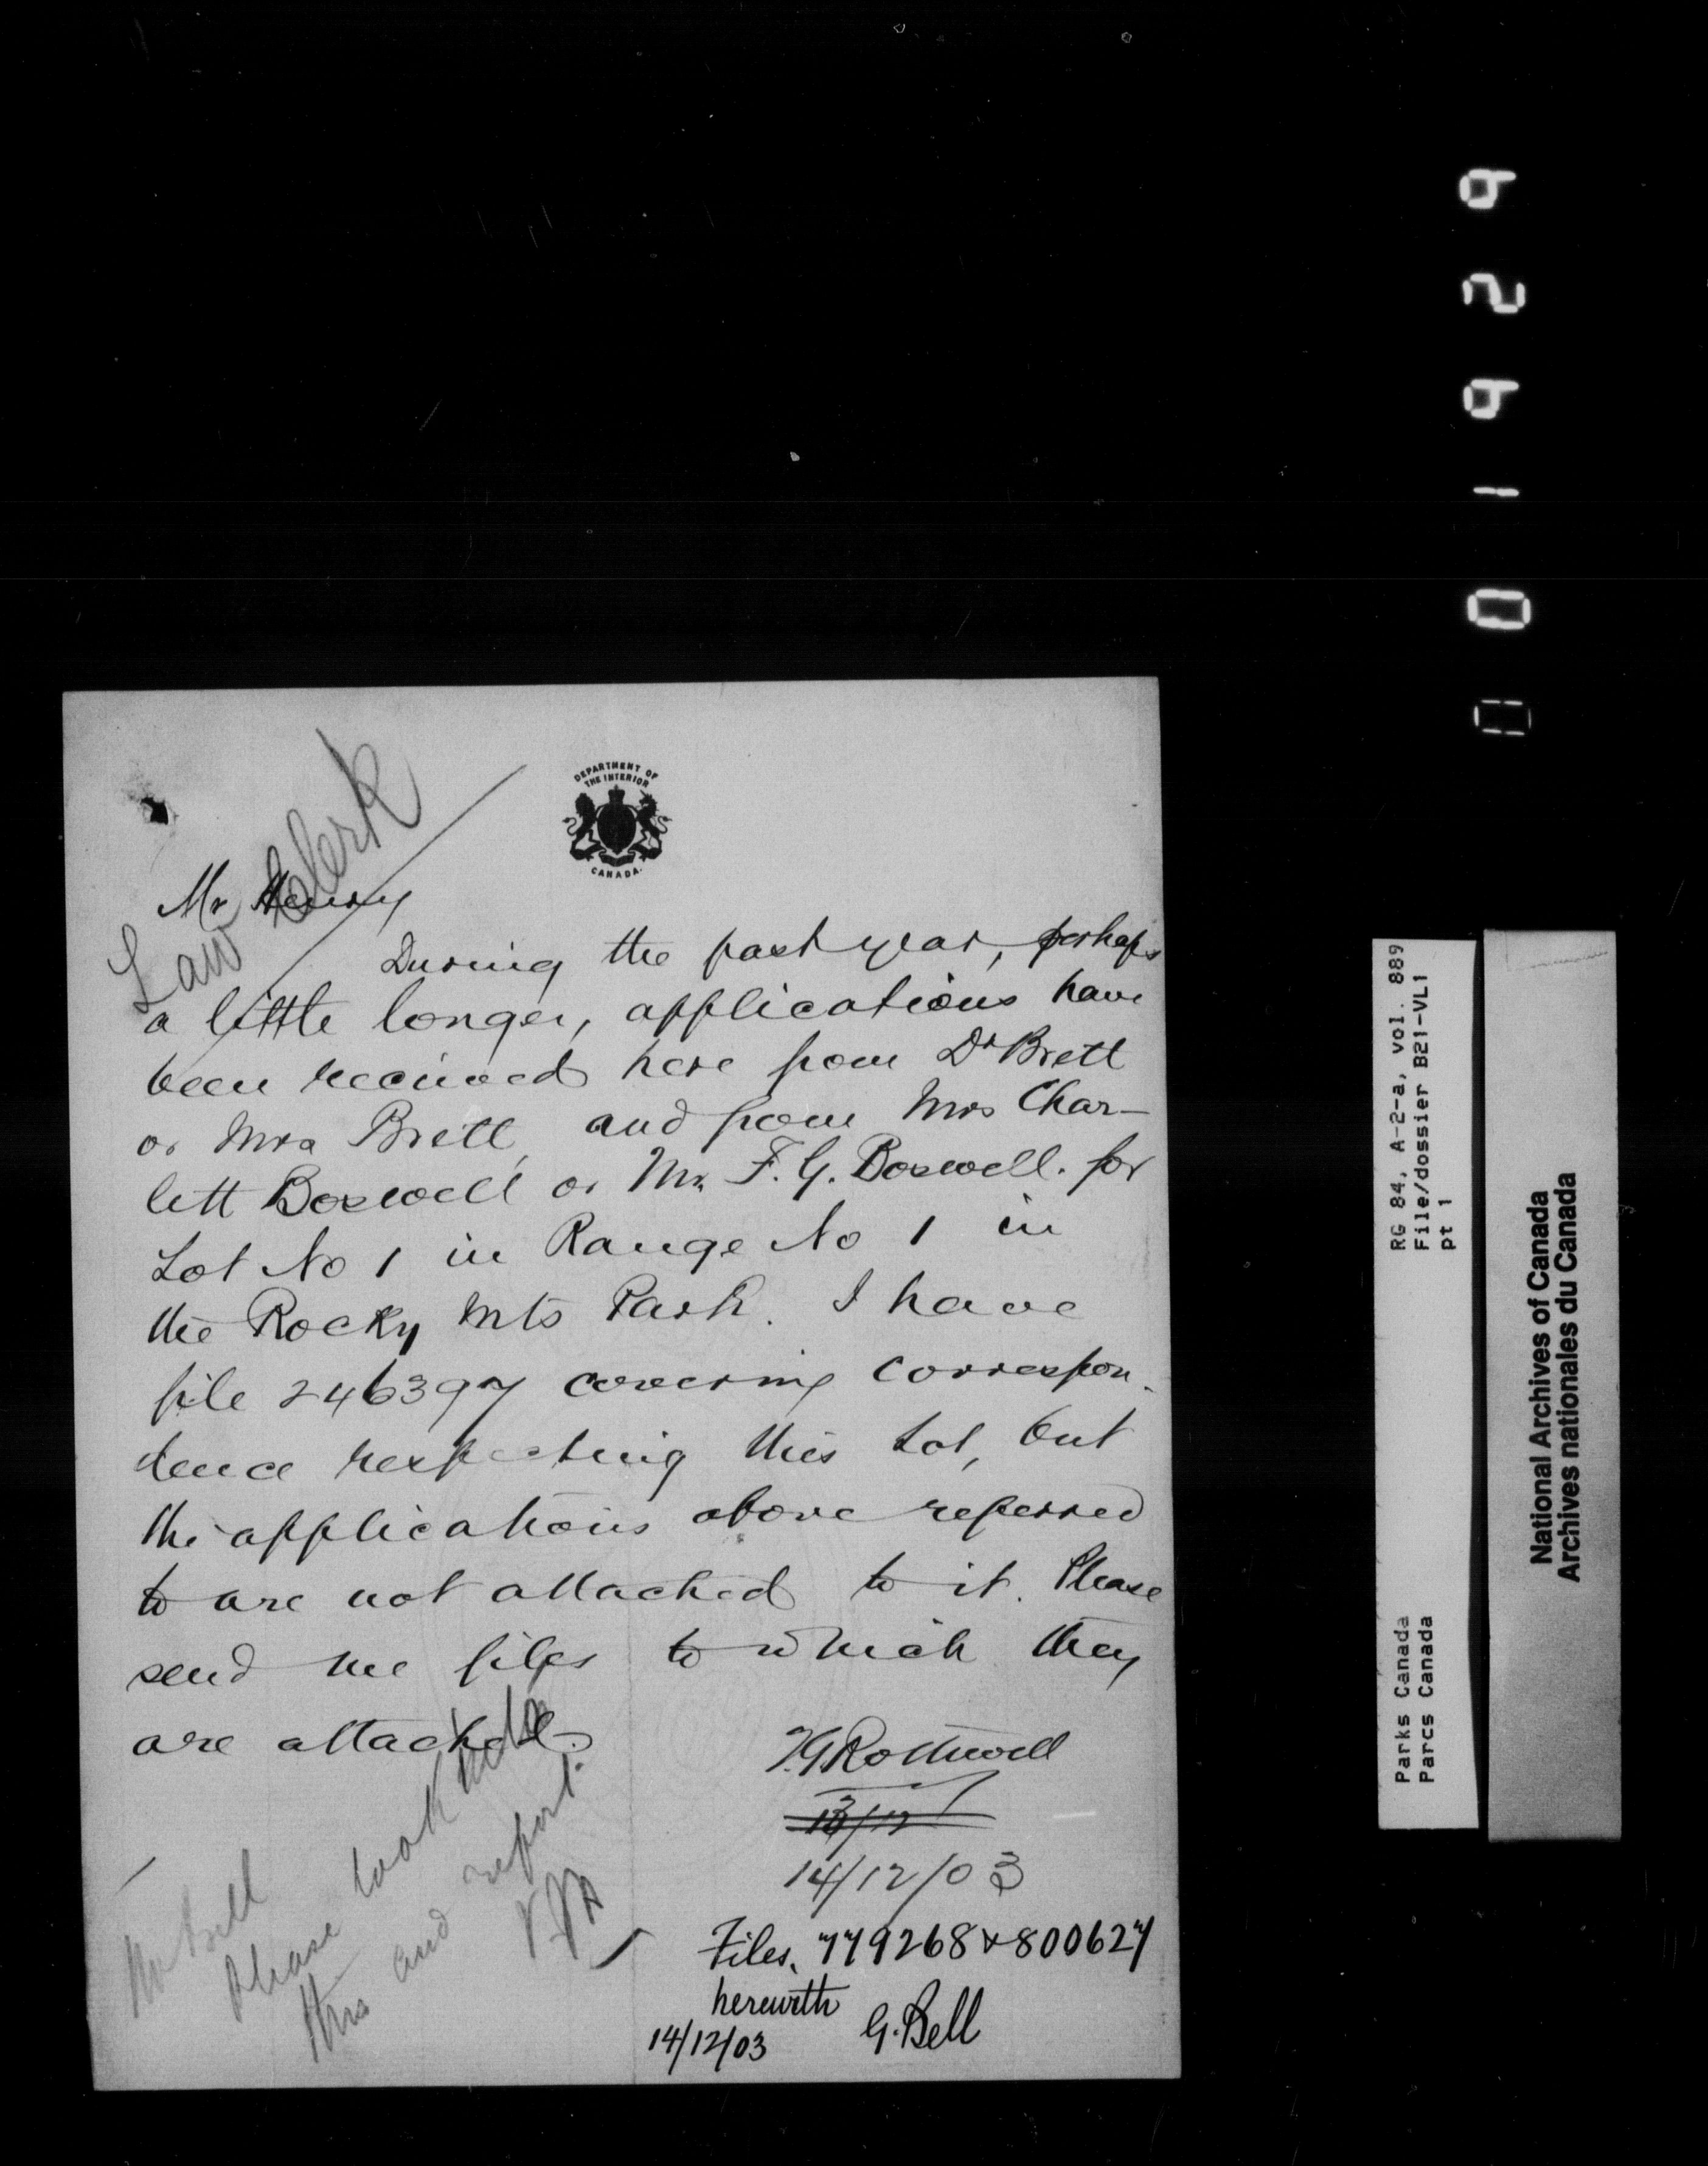 DEPARTMENT OF
THE INTERIOR
CANADA.
Law Clerk
Mr Henry
During the past year, perhaps
a little longer, applications have
been received here from Dr Brett
or Mrs Brett, and from Mrs Char-
lett Boswell or Mr. F. G. Boswell. for
Lot No 1 in Range No 1 in
the Rocky Mts Park. I have
file 246397 covering correspon-
dence respecting this Lot, but
the applications above referred
to are not attached to it. Please
send me files to which they
are attached.
T.G. Rothwell
14/12/03
Mr Bell
Please look into
this and report.
Files, 779268 & 800627
herewith
14/12/03 G. Bell
RG 84, A-2-a, vol. 889
File/dossier B21-VL1
pt 1
Parks Canada
Parcs Canada
National Archives of Canada
Archives nationales du Canada